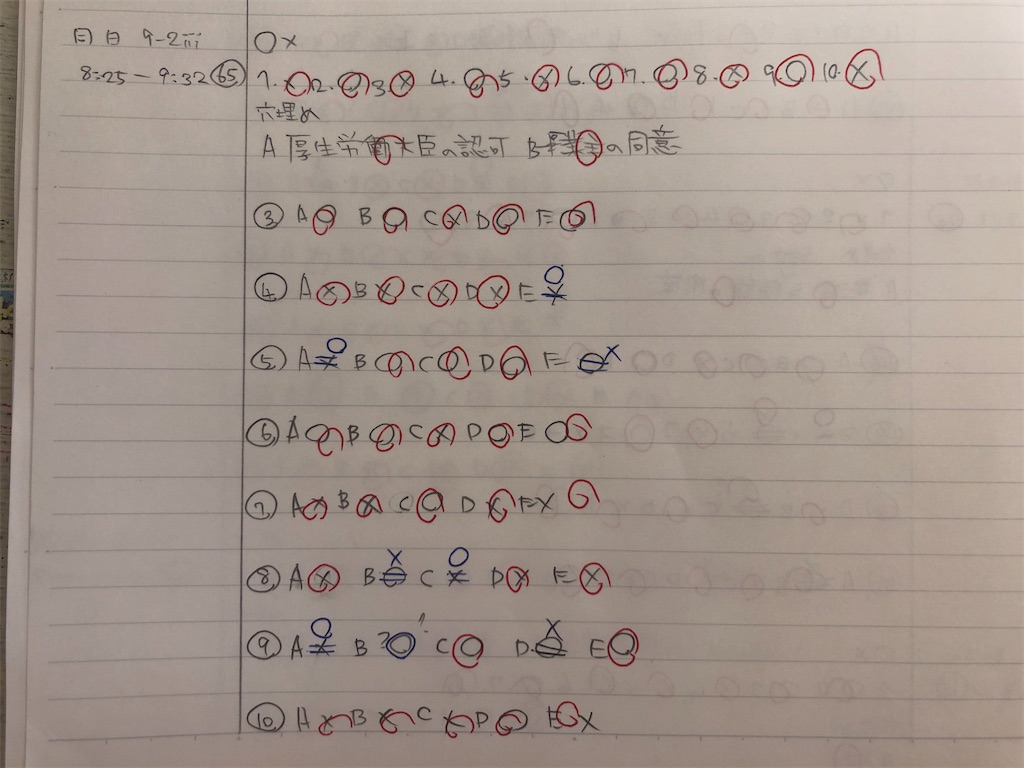 月日 9-2iii ○×
8:25-9:32 65 1.×2.○3× 4.○5.×6.○7.○8.×9○10.×
穴埋め
A厚生労働大臣の認可 B の同意
③ A○ B○ C× D○ E○
④ A× B× C× D× E×○
⑤ A×○ B○ C○ D○ E○×
⑥ A○ B○ C× D○ E○
⑦ A× B× C○ D× E×
⑧ A× B○× C×○ D× E×
⑨ A×○ B?○ C○ D.○× E○
⑩ A× B× C× D○ E×